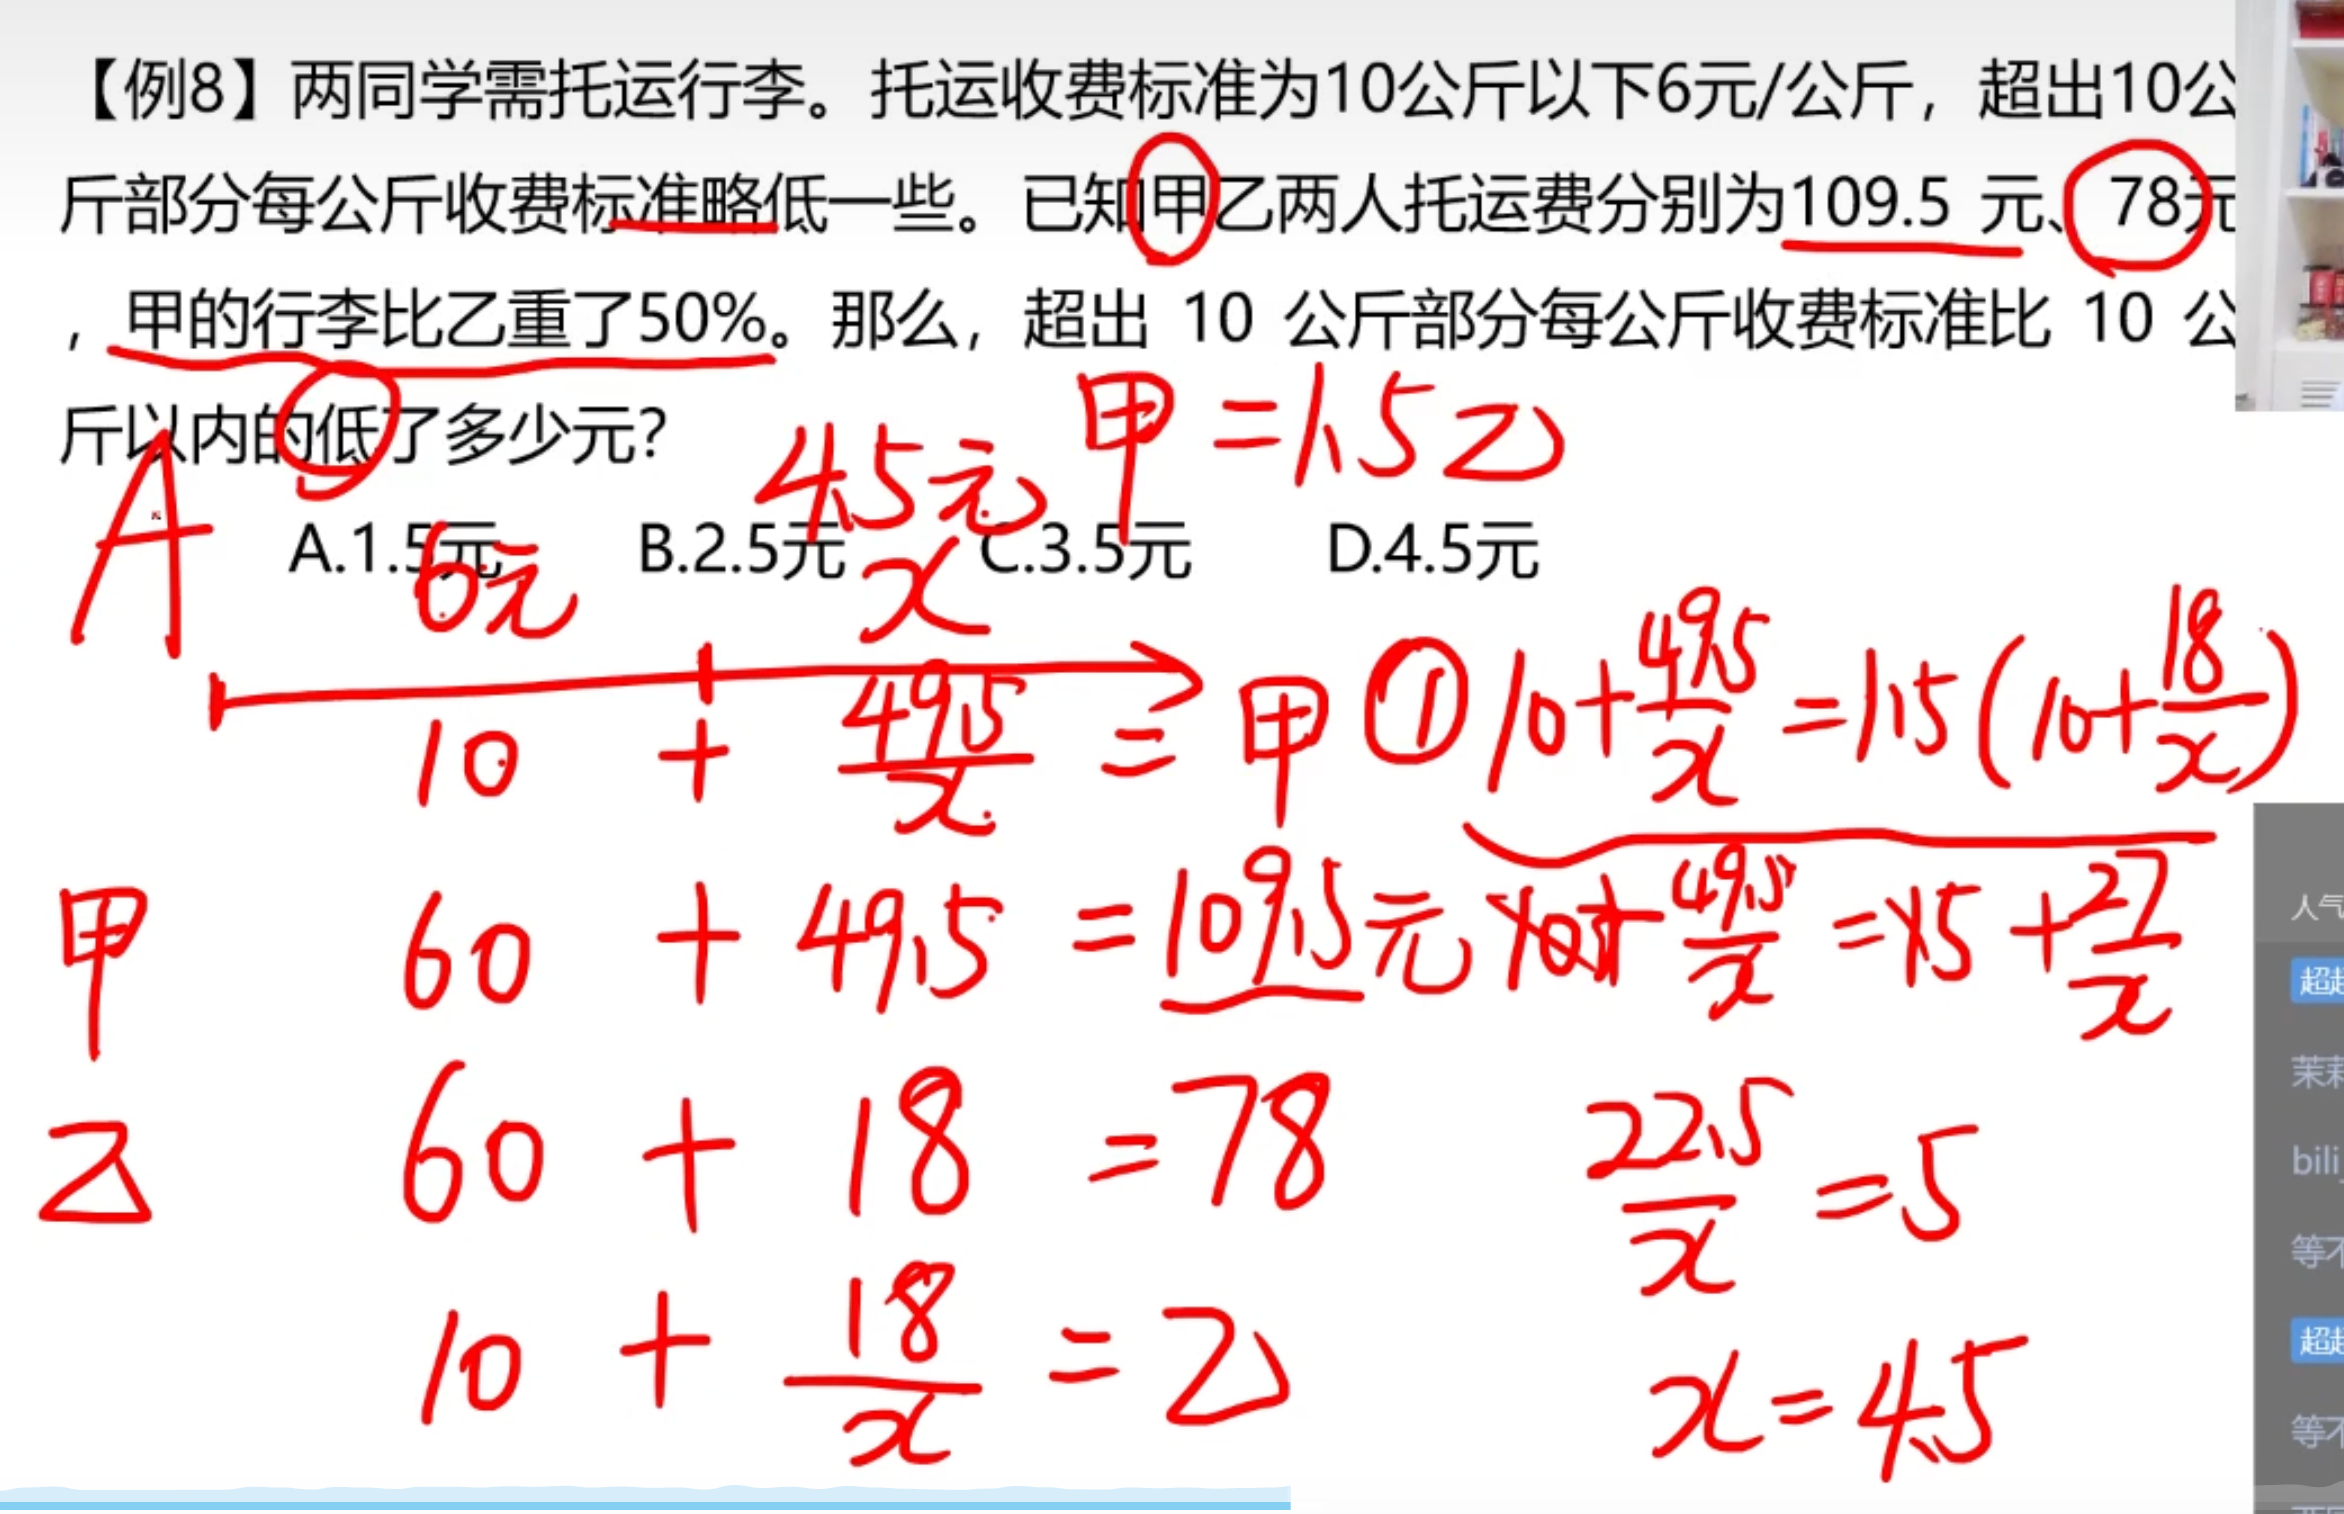 【例8】两同学需托运行李。托运收费标准为10公斤以下6元/公斤，超出10公
斤部分每公斤收费标准略低一些。已知甲乙两人托运费分别为109.5 元、78元
，甲的行李比乙重了50%。那么，超出 10 公斤部分每公斤收费标准比 10 公
斤以内的低了多少元？
甲=1.5乙
A
4.5元
A.1.5元 B.2.5元 C.3.5元 D.4.5元
6元 x
10 + 49.5/x = 甲 ① 10+49.5/x=1.5(10+18/x)
甲 60 + 49.5 =109.5元 10+49.5/x=15+27/x
乙 60 + 18 =78 22.5/x=5
10 + 18/x =乙 x=4.5
人气
超
茉莉
bili_
等不
超
等不